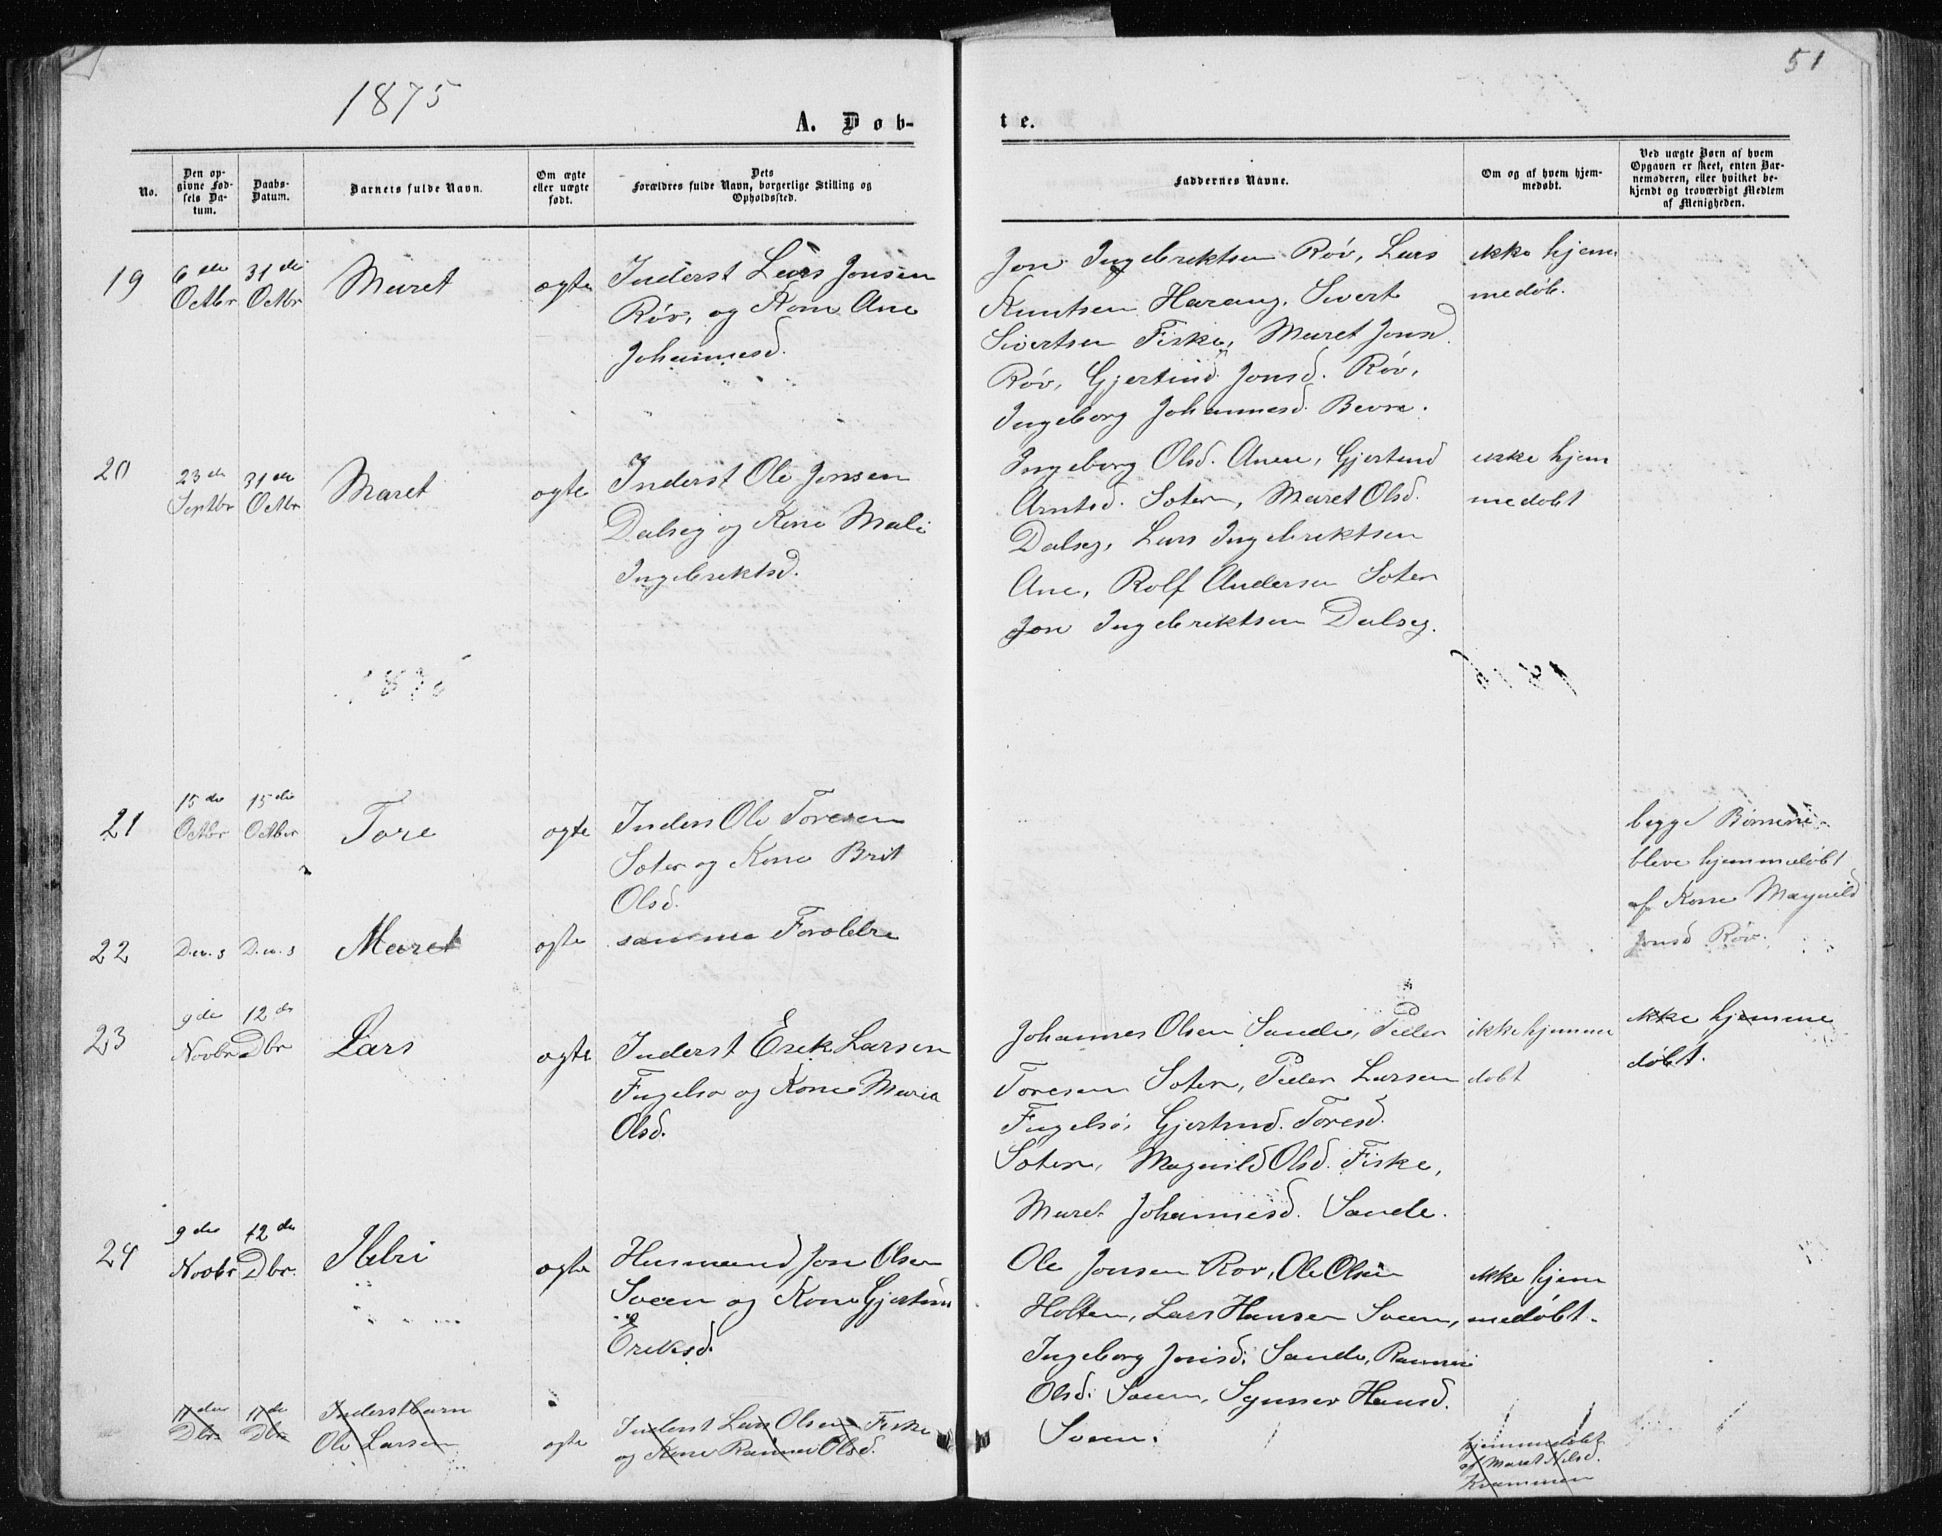 1875
51
A. Døb-
te.
No.
Den op-
givne Fød-
sels Da-
tum.
Daabs-
Datum.
Barnets fulde Navn.
Om ægte
eller uægte
født.
Dets
Forældres fulde Navn, borgerlige Stilling og
Opholdssted.
Faddernes Navne.
Om og af hvem hjem-
medøbt.
Ved uægte Børn af hvem
Opgaven er skeet, enten Bar-
nemoderen, eller hvilket be-
kjendt og troværdigt Medlem
af Menigheden.
19
6 de
Octbr
31 de
Octbr
Maret
ogte
Inderst Lars Jonsen
Røv, og Kone Ane
Johannesd.
Jon Ingebrektsen Røv, Lars
Knutsen Harang, Sivert
Sivertsen Fiske, Maret Jonsd.
Røv, Gjertrud Jonsd. Røv,
Ingeborg Johannesd. Bevre.
ikke hjem
medøb.
20
23 de
Septbr
31 de
Octbr
Maret
ogte
Inderst Ole Jonsen
Dalseg og Kone Mali
Ingebrektsd.
Ingeborg Olsd. Anee, Gjertrud
Arntsd. Soter, Maret Olsd.
Dalseg, Lars Ingebrektsen
Ane, Rolf Andersen Soter
Jon Ingebrektsen Dalseg.
ikke hjem
medøbt
21
15 de
Octbr
15 de
Octber
Tore
ogte
Inders Ole Toresen
Soter og Kone Brit
Olsd.
begge Børnene
bleve hjemmedøbt
af Kone Magnild
Jonsd Røv.
22
D.en. s
D.en. s
Maret
ogte
samme Foreldre
23
9 de
Novbr
12 de
Dbr
Lars
ogte
Inderst Erik Larsen
Fugelso og Kone Maria
Olsd.
Johannes Olsen Sande, Peder
Toresen Soter, Peder Larsen
Fugelsø, Gjertrud Toresd.
Soter, Magnild Olsd. Fiske,
Maret Johannesd. Sande.
ikke hjemme
dobt
ikke hjemme
døbt.
24
9 de
Novbr
12 de
Dbr.
Ildri
ogte
Husmand Jon Olsen
Sveen og Kone Gjertrud
Eriksd.
Ole Jonsen Rov, Ole Olsen
Holten, Lars Hansen Sveen,
Ingeborg Jonsd. Sande, Rannei
Olsd. Sveen, Synnev Hansd.
Sveen.
ikke hjem
medøbt.
11 de
Dbr
11 de
Dbr
Inderstbarn
Ole Larsen
ogte
Inderst Lars Olsen Fiske
og Kone Rannei Olsd.
hjemmedøbt
af Maret Nilsd.
Kvammen